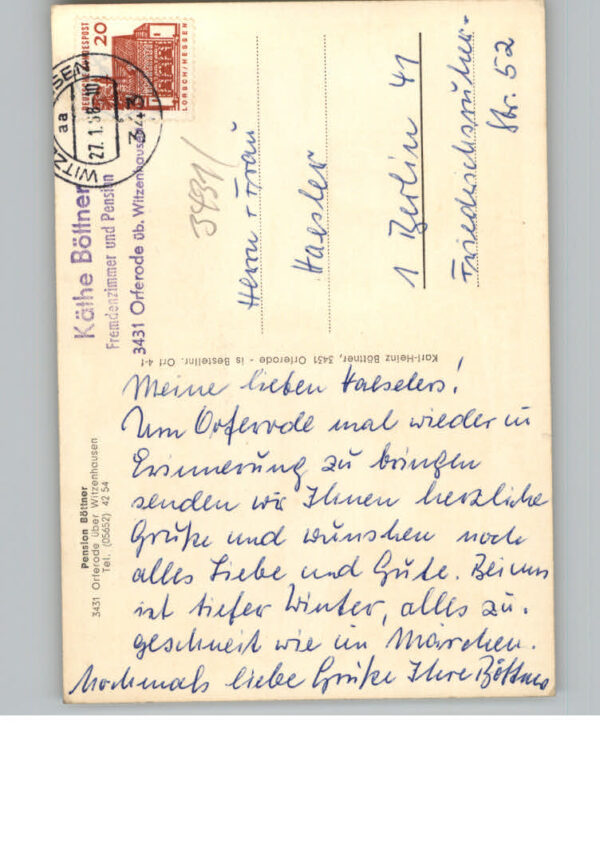 Meine lieben Haeselers!
Um Orferode mal wieder in
Erinnerung zu bringen
senden wir Ihnen herzliche
Grüße und wünschen noch
alles Liebe und Gute. Bei uns
ist tiefer Winter, alles zu-
geschneit wie im Märchen.
Nochmals liebe Grüße Ihre Böttners
Pension Böttner
3431 Orferode über Witzenhausen
Tel. (05652) 42 54
Karl-Heinz Böttner, 3431 Orferode - is Bestellnr. Orf 4-1
Käthe Böttner
Fremdenzimmer und Pension
3431 Orferode üb. Witzenhausen
DEUTSCHE BUNDESPOST
20
LORSCH/HESSEN
27.1.68-10
aa
343
3431/
Herrn + Frau
Haeseler
1 Berlin 41
Str. 52